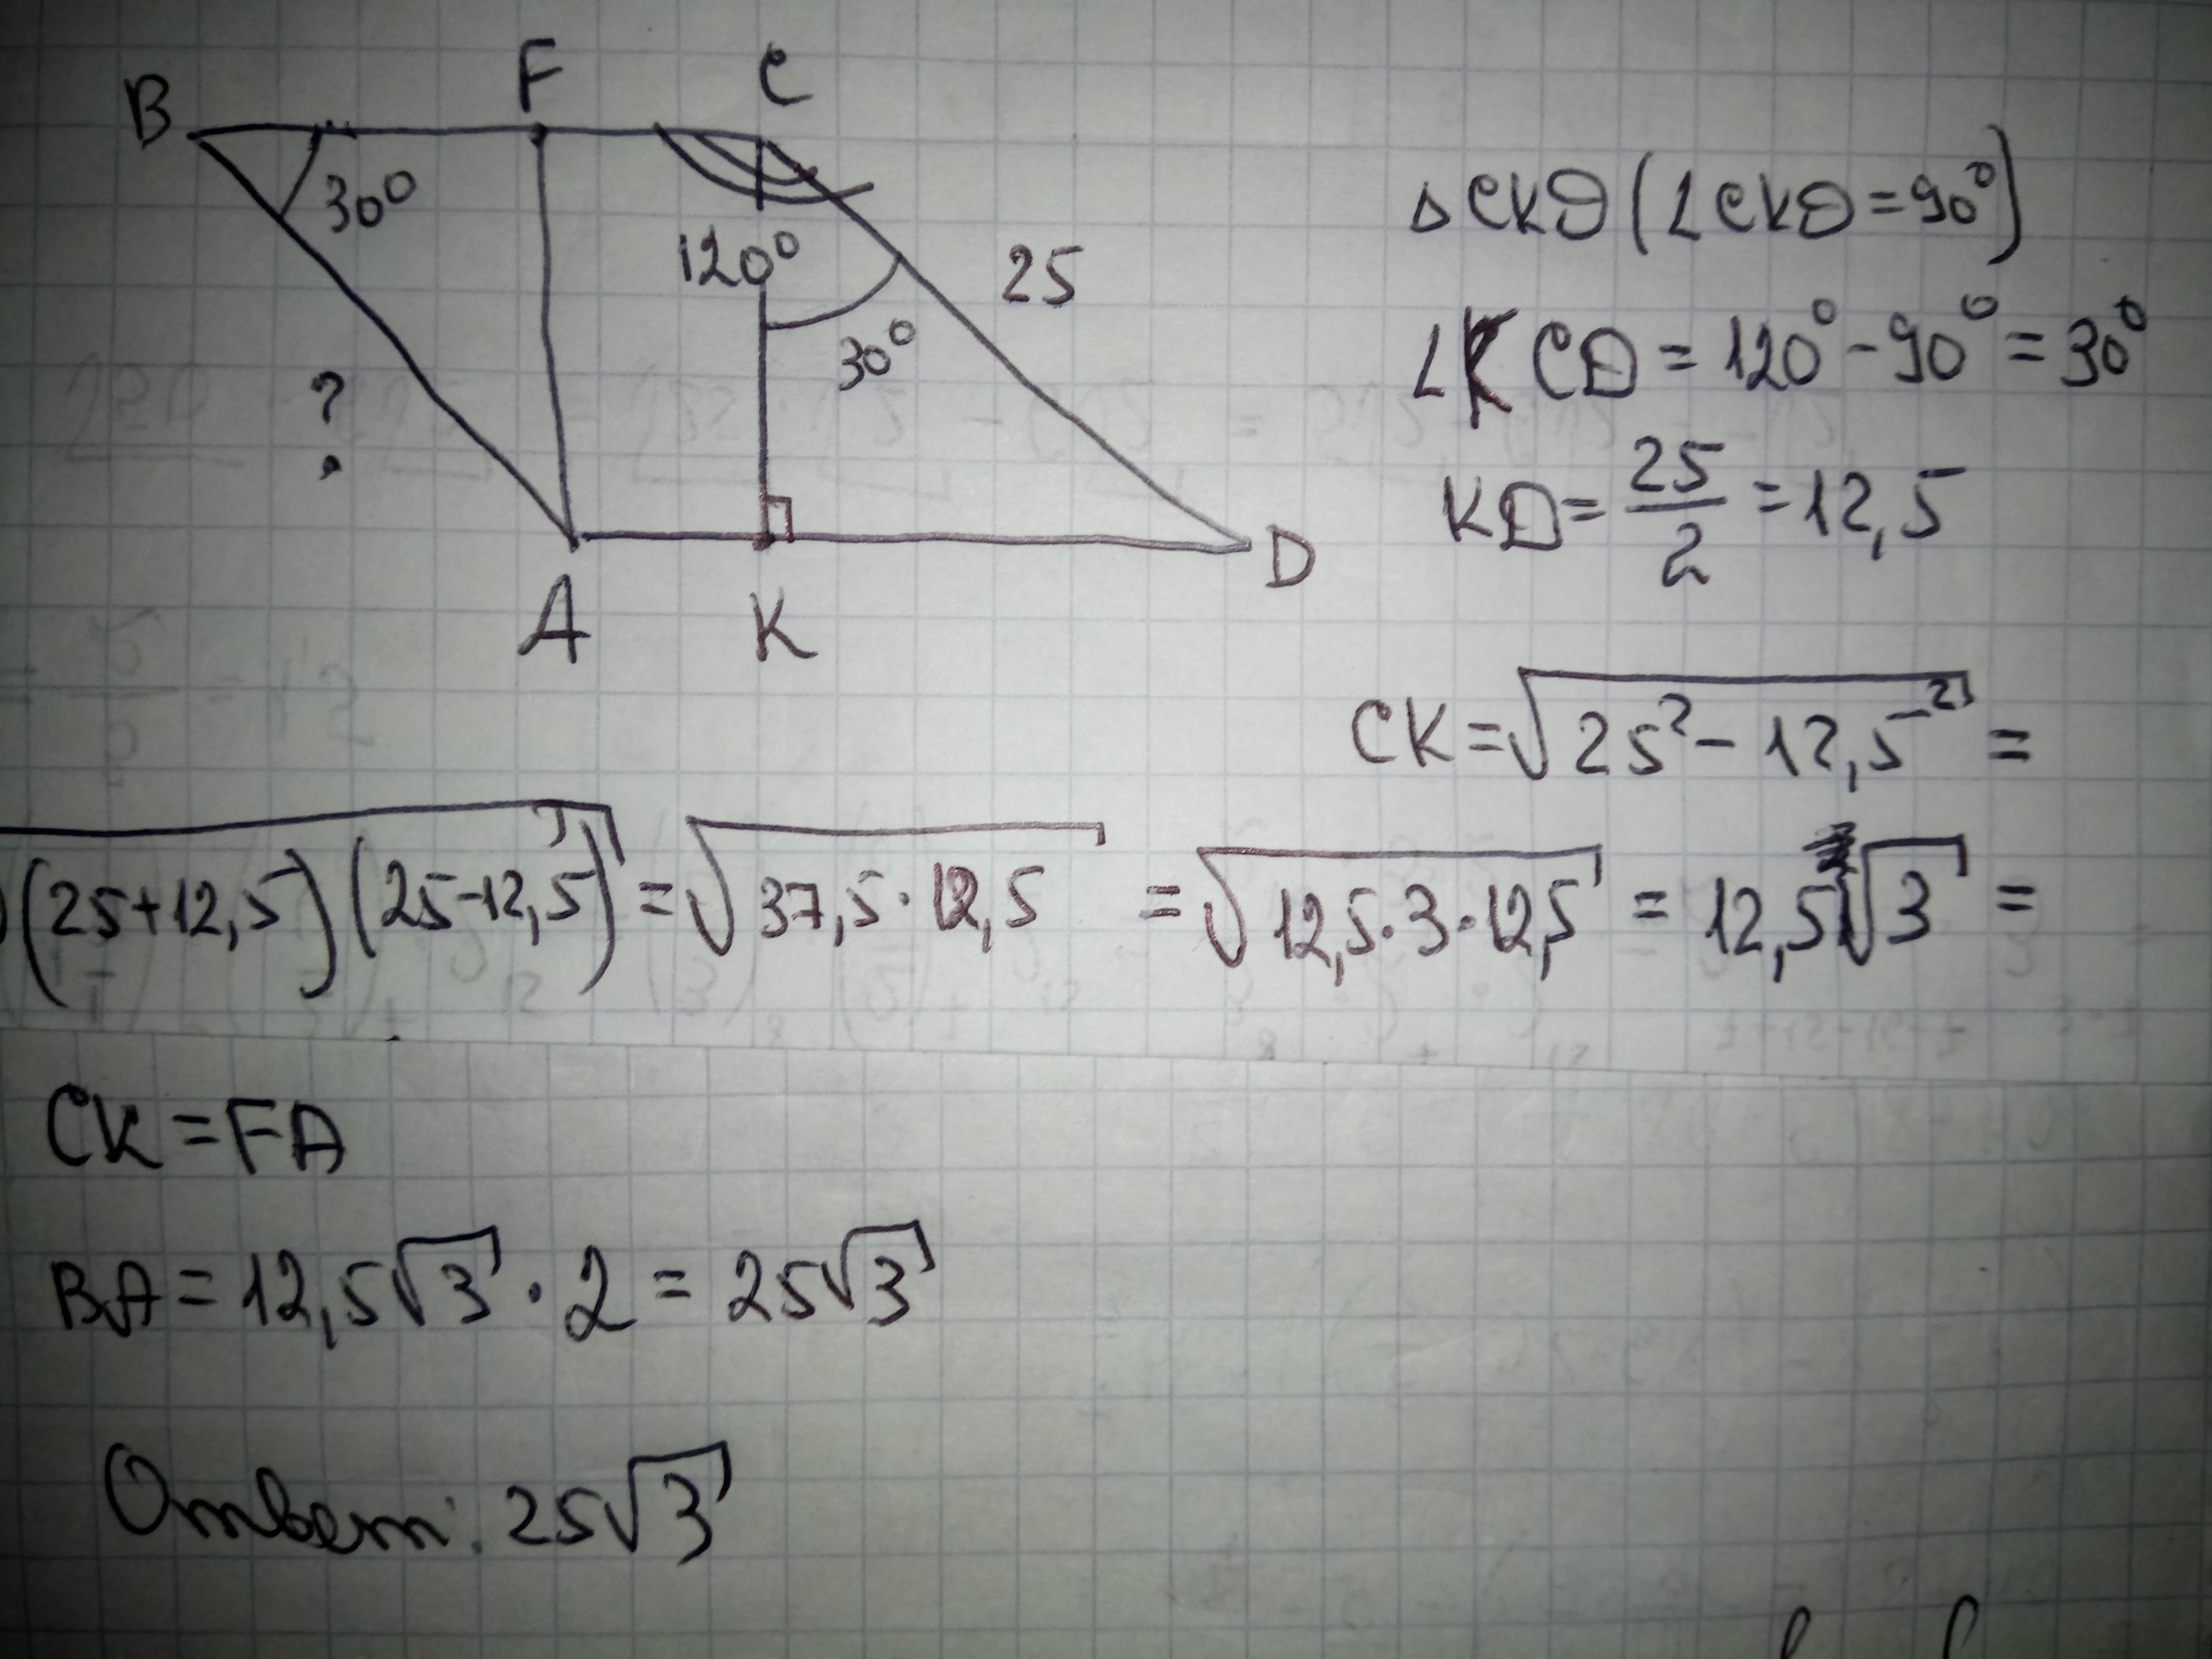 B F C
30° 120° 25
? 30°
A K D
∆CKD (∠CKD=90°)
∠KCD = 120° - 90° = 30°
KD = 25/2 = 12,5
CK = √(25² - 12,5²) =
√(25+12,5)(25-12,5) = √(37,5·12,5) = √(12,5·3·12,5) = 12,5√3 =
CK = FA
BA = 12,5√3 · 2 = 25√3
Ответ: 25√3